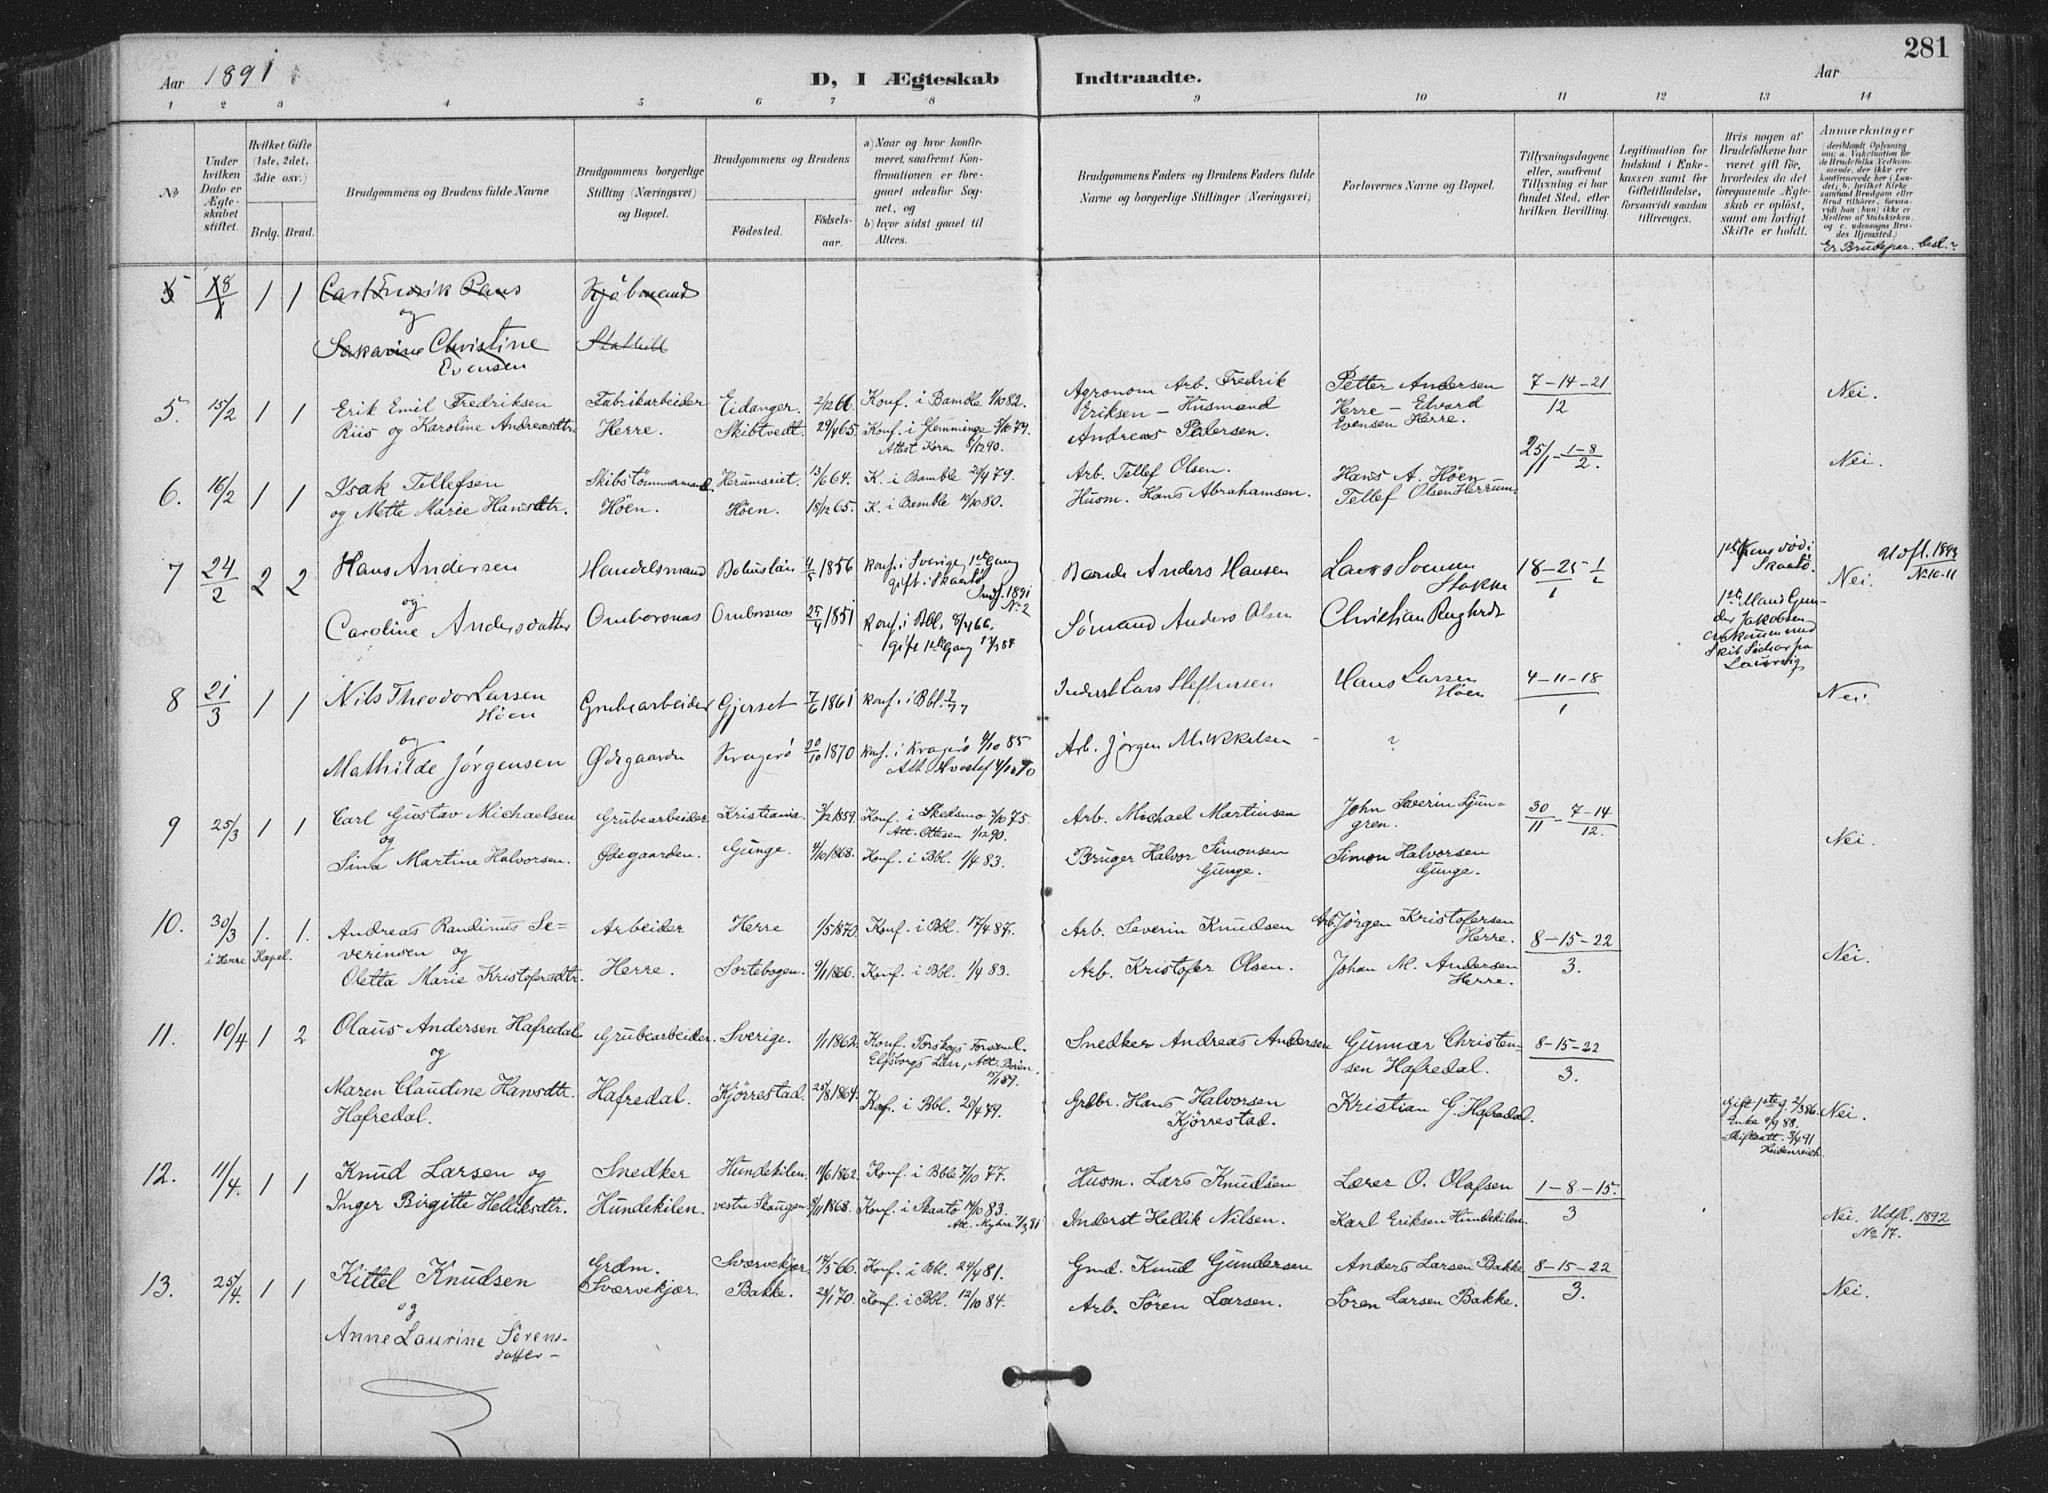 281
Aar 1891
D, I Ægteskab Indtraadte.
Aar
1 2 3 4 5 6 7 8 9 10 11 12 13 14
No
Under hvilken Dato er Ægteskabet stiftet.
Hvilket Gifte (1ste, 2det, 3die osv.)
Brdg. Brud.
Brudgommens og Brudens fulde Navne
Brudgommens borgerlige Stilling (Næringsvei) og Bopæl.
Brudgommens og Brudens
Fødested. Fødselsaar.
a) Naar og hvor konfirmeret, saafremt Konfirmationen er foregaaet udenfor Sognet, og
b) hvor sidst gaaet til Alters.
Brudgommens Faders og Brudens Faders fulde Navne og borgerlige Stillinger (Næringsvei)
Forlovernes Navne og Bopæl.
Tillysningsdagene eller, saafremt Tillysning ei har fundet Sted, efter hvilken Bevilling.
Legitimation for Indskud i Enkekassen samt for Giftetilladelse, forsaavidt saadan tiltrænges.
Hvis nogen af Brudefolkene har været gift før, hvorledes da det foregaaende Ægteskab er opløst, samt om lovligt Skifte er holdt.
Anmærkninger (deriblandt Oplysning om: a. Vakcination for de Brudefolks Vedkommende, der ikke ere konfirmerede her i Landet; b. hvilket Kirkesamfund Brudgom eller Brud tilhører, forsaavidt han (hun) ikke er Medlem af Statskirken, og c. udensogns Brudes Hjemsted.)
Er Brudepar. besl.?
18/1 1 1 Carl Fredrik Kjøbmand
og
Christine Stathell
Evensen
5. 15/2 1 1 Erik Emil Fredriksen Fabrikarbeider Eidanger. 2/12 66. Konf. i Bamble 1/10 82. Agronom Arb. Fredrik Petter Andersen 7-14-21 Nei.
Riis og Karoline Andreasdtr Herre. Skibtvedt. 29/4 65. Konf. i Glemminge 5/10 79. Eriksen - Husmand Herre - Edvard 12
Attest Koren 8/12 90. Andreas Pedersen. Evensen Herre.
6. 16/2 1 1 Isak Tellefsen Skibstömmermand. Herumseiet. 13/6 64. K. i Bamble 20/4 79. Arb. Tellef Olsen. Hans A. Höen 25/1 - 1-8/2. Nei.
og Mette Marie Hansdtr. Höen. Höen. 18/12 65. K. i Bamble 10/10 80. Husm. Hans Abrahamsen. Tellef Olsen Herrum.
7 24/2 2 2 Hans Andersen Handelsmand Bohuslän 4/5 1856 Konf. i Sverige, 1ste Gang Anders Hansen 18-25 1/2 Nei. Udfl. 1893
gift i Skaatö Indf. 1891 No 2 Stokke 1 No 10-11
og
Caroline Andersdatter Omborsnæs Omborsnæs 25/4 1851 Konf. i Bbl. 8/4 66. Sömand Anders Olsen Christian
gift 1ste Gang
1ste Mand Gunder Jakobsen
8 21/3 1 1 Nils Theodor Larsen Grubearbeider Gjerset 7/6 1861 Konf. i Bbl. 7/77 Inderst Lars Steffensen Hans Larsen 4-11-18 Nei.
Höen Höen 1
og
Mathilde Jørgensen Ødegaarden Kragerö 20/10 1870 Konf. i Kragerö 4/10 85 Arb. Jørgen Mikkelsen - ?
9 25/3 1 1 Carl Gustav Michaelsen Grubearbeider Kristiania. 3/12 1859 Konf. i Skedsmo 3/10 75. Arb. Michael Martinsen John Severin Ljungren. 30/11 - 7-14/12. Nei.
og Att. Ottesen 1/12 90.
Sina Martine Halvorsen. Ödegaarden. Gunge. 4/10 1868. Konf. i Bbl. 1/4 83. Bruger Halvor Simonsen Simon Halvorsen
Gunge. Gunge.
10. 30/3 1. 1. Andreas Randinus Se= Arbeider Herre 1/5 1870. Konf. i Bbl. 17/4 87. Arb. Severin Knudsen Arb. Jörgen Kristofersen 8-15-22 Nei.
i Herre Kapel. verinsen og Herre. 3.
Oletta Marie Kristofersdtr. Herre. Sortebogen. 9/11 1866. Konf. i Bbl. 1/4 83. Arb. Kristofer Olsen. Johan M. Andersen
Herre.
11. 10/4 1 2 Olaus Andersen Hafredal Grubearbeider. Sverige. 1/1 1862. Konf. Torskogs Elfsborgs Län, Att. Snedker Andreas Andersen Gunnar Christensen Hafredal. 8-15-22
og 15/1 89. 3.
Maren Claudine Hansdtr. Hafredal. Kjörrestad. 25/8 1864. Konf. i Bbl. 20/4 79. Grdbr. Hans Halvorsen Kristian G. Hafredal. Gift 1ste g. 2/3 86. Nei.
Hafredal. Kjörrestad. Enke 4/9 88.
Skifteatt. 3/4 91
Heidenreich
12. 11/4 1 1 Knud Larsen og Snedker Hundekilen. 11/6 1862. Konf. i Bble 7/10 77. Husm. Lars Knudsen Lærer O. Olafsen 1-8-15.
Inger Birgitte Helliksdtr. Hundekilen. vestre Skaugen 8/11 1868. Konf. i Skaatö 14/10 83. Inderst Hellik Nilsen. Karl Eriksen Hundekilen. 3 Nei. Udfl. 1892
No 17.
13. 25/4. 1 1 Kittel Knudsen Grdm. Sværvekjær. 17/5 66. Konf. i Bbl. 24/4 81. Gmd. Knud Gundersen Anders Larsen Bakke 8-15-22 Nei.
og Sværvekjær. Bakke. 24/1 70. Konf. i Bbl. 12/10 84. Arb. Sören Larsen. Sören Larsen Bakke. 3.
Anne Laurine Sörens-
datter -